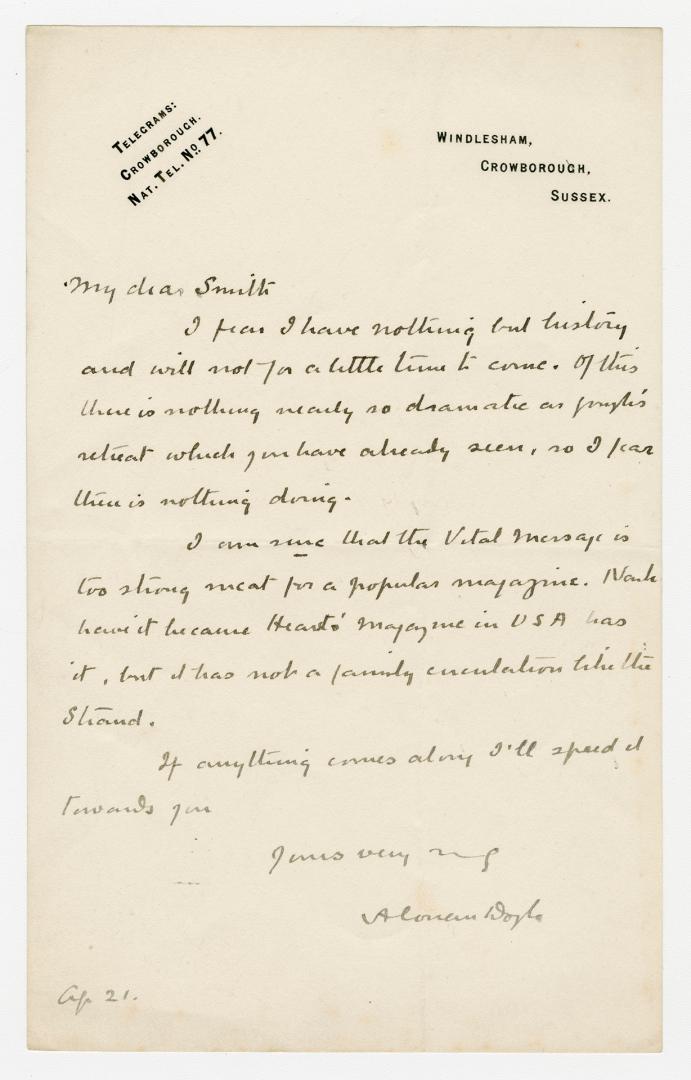 TELEGRAMS:
CROWBOROUGH.
NAT. TEL. No 77.
WINDLESHAM,
CROWBOROUGH,
SUSSEX.
My dear Smith
I fear I have nothing but history
and will not for a little time to come. Of this
there is nothing nearly so dramatic as Gough's
retreat which you have already seen, so I fear
there is nothing doing.
I am sure that the Vital Message is
too strong meat for a popular magazine. Nash
have it because Hearst's Magazine in USA has
it, but it has not a family circulation like the
Strand.
If anything comes along I'll speed it
towards you
Yours very
A Conan Doyle
Ap 21.